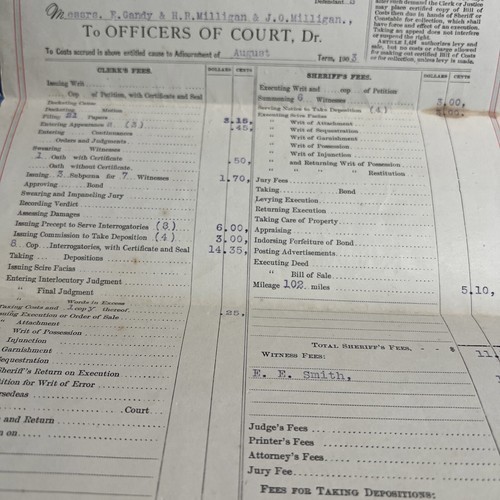 Messrs, E.Gandy & H.E.Milligan & J.O.Milligan.,
To OFFICERS OF COURT, Dr.
To Costs accrued in above entitled cause to Adjournment of August Term, 1903
demand the Clerk or Justice
may place certified copy of Bill of
Costs in hands of Sheriff or
Constable for collection, which shall
have force and effect of an execution.
Taking an appeal does not interfere
ARTICLE LAW authorizes levy and
sale, but no costs or charge allowed
for making out certified Bill of Costs
CLERK'S FEES. DOLLARS CENTS
Issuing Writ
Cop. of Petition, with Certificate and Seal
Docketing Cause
Docketing Motion
Filing 21 Papers 3.15,
Entering Appearance (3) .45,
Entering Continuances
Orders and Judgments
Swearing Witnesses
1 Oath with Certificate .50,
Oath without Certificate
Issuing 3 Subpœna for 7 Witnesses 1.70,
Approving Bond
Swearing and Impaneling Jury
Recording Verdict
Assessing Damages
Issuing Precept to Serve Interrogatories (8) 6.00,
Issuing Commission to Take Deposition (4) 3.00,
8 Cop. Interrogatories, with Certificate and Seal 14.35,
Taking Depositions
Issuing Scire Facias
Entering Interlocutory Judgment
" Final Judgment
Words in Excess
Taking Costs and 1 copy thereof .25.
Issuing Execution or Order of Sale
" Attachment
Writ of Possession
Injunc
Garnishment
Sequestration
Sheriff's Return on Execution
ition for Writ of Error
ersedeas
Court
e and Return
n on
SHERIFF'S FEES. DOLLARS CENTS
Executing Writ and cop of Petition
Summoning 6 Witnesses 3.00,
Serving Notice to Take Deposition (4)
Executing Scire Facias
" Writ of Attachment
" Writ of Sequestration
" Writ of Garnishment
" Writ of Possession
" Writ of Injunction
" and Returning Writ of Possession
" " Restitution
Jury Fees
Taking Bond
Levying Execution
Returning Execution
Taking Care of Property
Appraising
Indorsing Forfeiture of Bond
Posting Advertisements
Executing Deed
" Bill of Sale
Mileage 102 miles 5.10,
TOTAL SHERIFF'S FEES, - - $
WITNESS FEES:
E. E. Smith,
Judge's Fees
Printer's Fees
Attorney's Fees
Jury Fee
FEES FOR TAKING DEPOSITIONS: